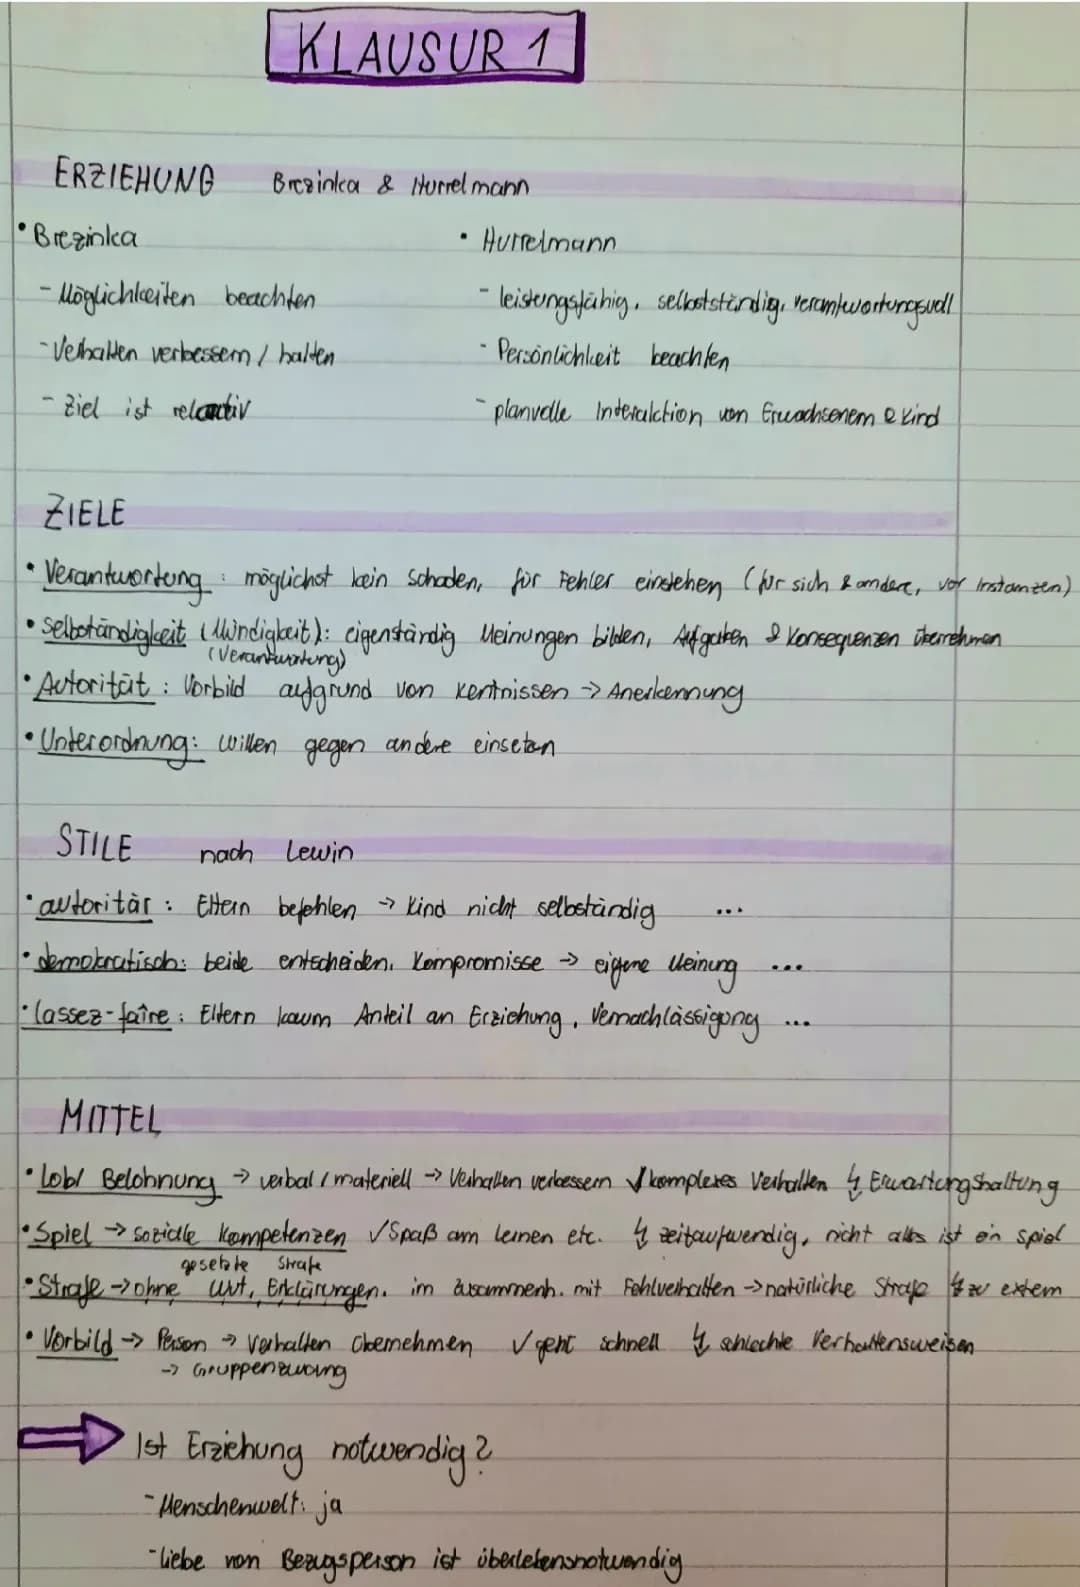 KLAUSUR 1
ERZIEHUNG Brezinka & Hurrelmann
• Brezinka
- Möglichkeiten beachten
- Verhalten verbessern / halten
- Ziel ist relativ
• Hurrelmann
- leistungsfähig, selbstständig, verantwortungsvoll
- Persönlichkeit beachten
- planvolle Interaktion von Erwachsenem & Kind
ZIELE
• Verantwortung : möglichst kein Schaden, für Fehler einstehen (für sich & andere, vor Instanzen)
• Selbständigkeit (Mündigkeit): eigenständig Meinungen bilden, Aufgaben & Konsequenzen übernehmen
(Verantwortung)
• Autorität : Vorbild aufgrund von Kentnissen → Anerkennung
• Unterordnung: Willen gegen andere einsetzen
STILE nach Lewin
• autoritär : Eltern befehlen → Kind nicht selbständig ...
• demokratisch: beide entscheiden, Kompromisse → eigene Meinung ...
• lassez-faîre : Eltern kaum Anteil an Erziehung, Vernachlässigung ...
MITTEL
• Lob/ Belohnung → verbal / materiell → Verhalten verbessern ✓ komplexes Verhalten ↯ Erwartungshaltung
• Spiel → soziale Kompetenzen ✓ Spaß am Lernen etc. ↯ zeitaufwendig, nicht alles ist ein Spiel
gesetzte Strafe
• Strafe → ohne Wut, Erklärungen, im zusammenh. mit Fehlverhalten → natürliche Strafe ↯ zu extrem
• Vorbild → Person → Verhalten übernehmen ✓ geht schnell ↯ schlechte Verhaltensweisen
→ Gruppenzwang
Ist Erziehung notwendig?
- Menschenwelt: ja
- Liebe von Bezugsperson ist überlebensnotwendig